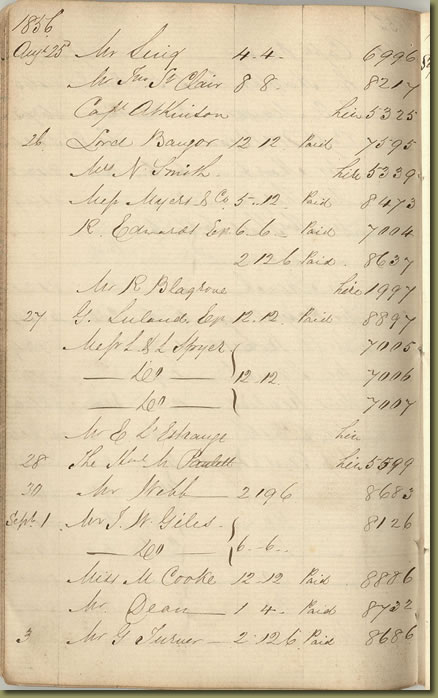 1856
Augt 25 Mr Sing 4.4. 6996
Mr Jno St Clair 8 8. 8217
Capt Atkinson hire 5325
26 Lord Bangor 12 12 Paid 7595
Mrs N Smith hire 5339
Mess Myers & Co 5..12. Paid 8473
R. Edwards Esq. 6..6.. Paid 7004
2 12 6 Paid. 8637
Mr R Blagrove hire 1997
27 G. Esq. 12.12 Paid 8897
Mess L & L Spyer 7005
Do 12.12. 7006
Do 7007
Mr E L'Estrange hire
28 The Honl M Paulett hire 5599
30 Mr Webb 2 19 6 8683
Septr. 1 Mr J. W. Giles. 8126
Do 6..6..
Miss M Cooke 12..12 Paid 8886
Mr Dean 1 4. Paid 8732
3 Mr G Turner 2.12 6. Paid 8686